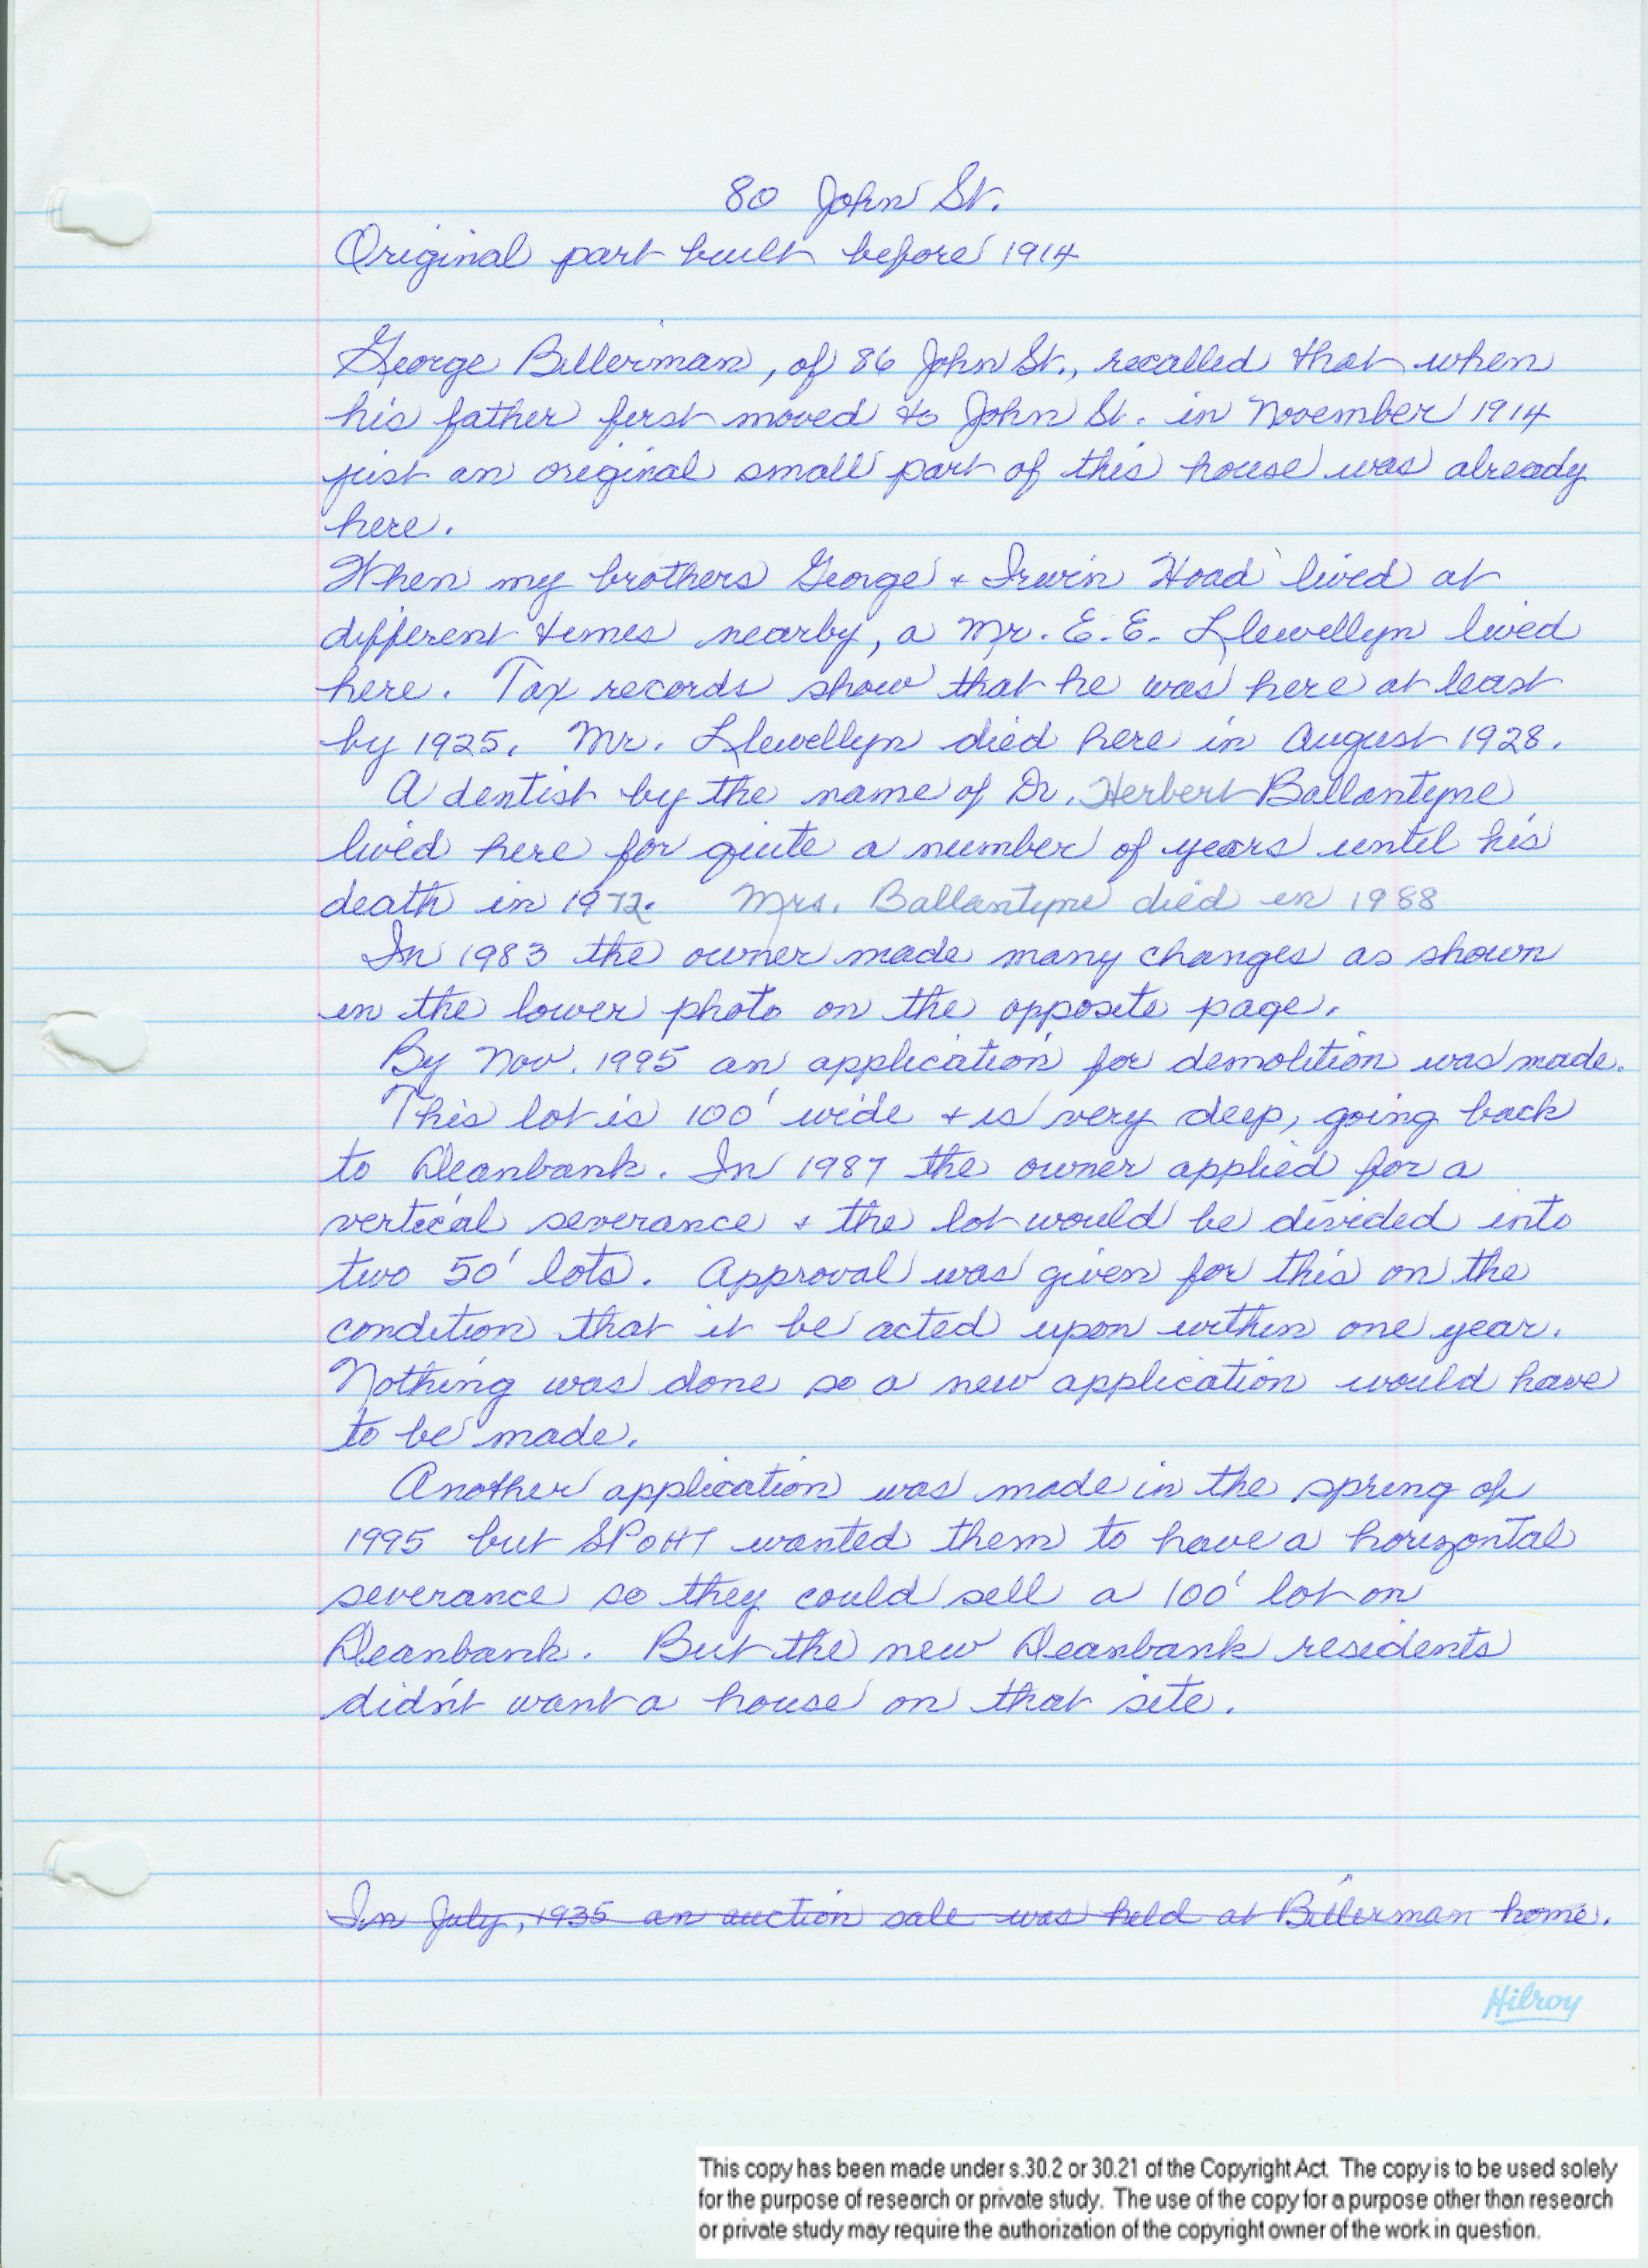 80 John St.
Original part built before 1914
George Billerman, of 86 John St., recalled that when
his father first moved to John St. in November 1914
just an original small part of this house was already
here.
When my brothers George & Irwin Hoad lived at
different times nearby, a Mr. E. E. Llewellyn lived
here. Tax records show that he was here at least
by 1925. Mr. Llewellyn died here in August 1928.
A dentist by the name of Dr. Herbert Ballantyne
lived here for quite a number of years until his
death in 1972. Mrs. Ballantyne died in 1988
In 1983 the owner made many changes as shown
in the lower photo on the opposite page.
By Nov. 1995 an application for demolition was made.
This lot is 100' wide & is very deep, going back
to Deanbank. In 1987 the owner applied for a
vertical severance & the lot would be divided into
two 50' lots. Approval was given for this on the
condition that it be acted upon within one year.
Nothing was done so a new application would have
to be made.
Another application was made in the spring of
1995 but SPOHT wanted them to have a horizontal
severance so they could sell a 100' lot on
Deanbank. But the new Deanbank residents
didn't want a house on that site.
In July, 1935 an auction sale was held at Billerman home.
Hilroy
This copy has been made under s.30.2 or 30.21 of the Copyright Act. The copy is to be used solely
for the purpose of research or private study. The use of the copy for a purpose other than research
or private study may require the authorization of the copyright owner of the work in question.